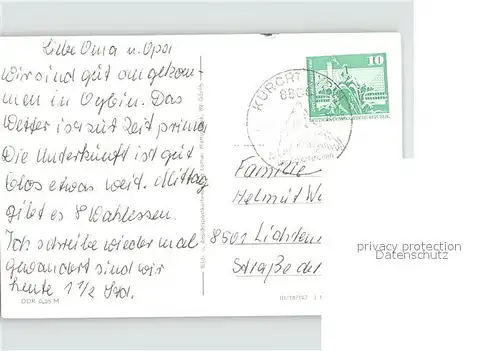 Liebe Oma u. Opa
Wir sind gut angekom-
men in Oybin. Das
Wetter ist zur Zeit prima
Die Unterkunft ist gut
blos etwas weit. Mittag
gibt es 8 Wahlessen.
Ich schreibe wieder mal
gewandert sind wir
heute 1 1/2 Std.
DDR 0,25 M
KURORT
10
DEUTSCHE DEMOKRATISCHE REPUBLIK
Familie
Helmut
8501 Lichten
Straße de
privacy protection
Datenschutz